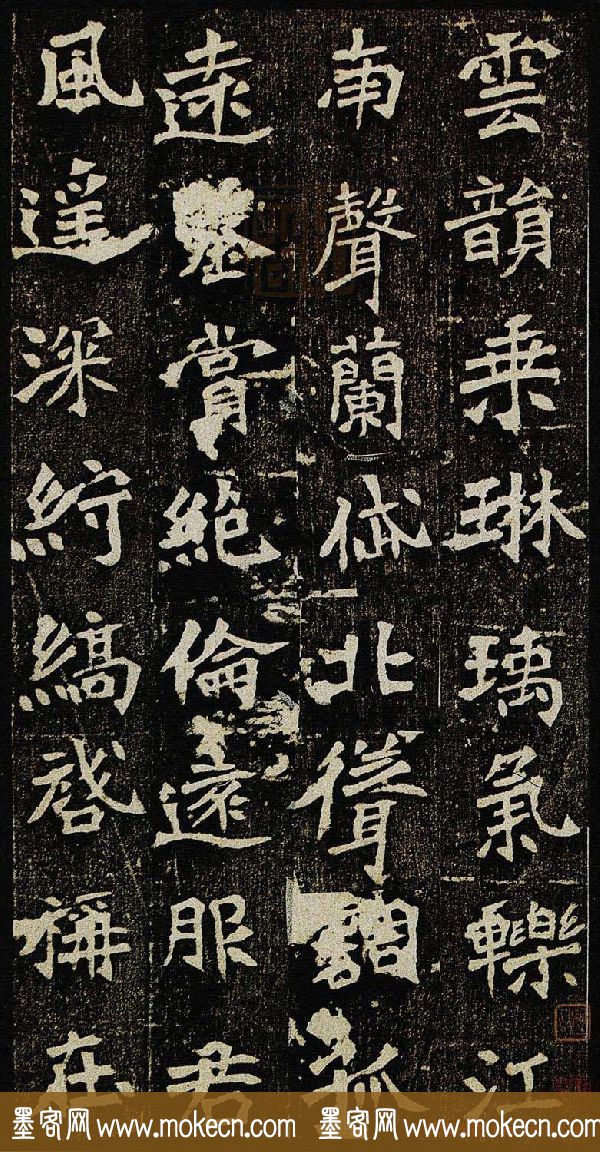 雲韻乘琳瑀氣轢江
南聲蘭岱北聳調孤
遠鑒賞絕倫遠服君
風遙深紵縞啓稱在
墨客网 www.mokecn.com 墨客网 www.mokecn.com